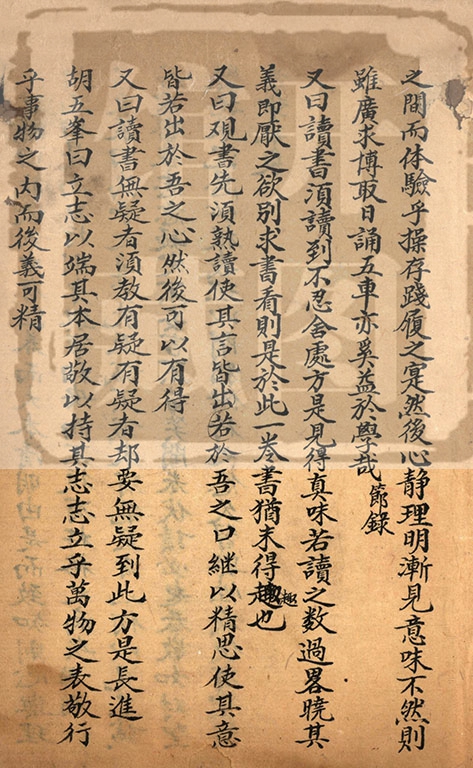 之間而体驗乎操存踐履之寔然後心静理明漸見意味不然則
雖廣求博取日誦五車亦奚益於學哉 節錄
又曰讀書須讀到不忍舍處方是見得真味若讀之数過畧曉其
義即厭之欲别求書看則是於此一巻書猶未得趣也
趣
又曰观書先須熟讀使其言皆出若於吾之口継以精思使其意
皆若出於吾之心然後可以有得
又曰讀書無疑者須教有疑有疑者却要無疑到此方是長進
胡五峯曰立志以端其本居敬以持其志志立乎萬物之表敬行
乎事物之内而後義可精